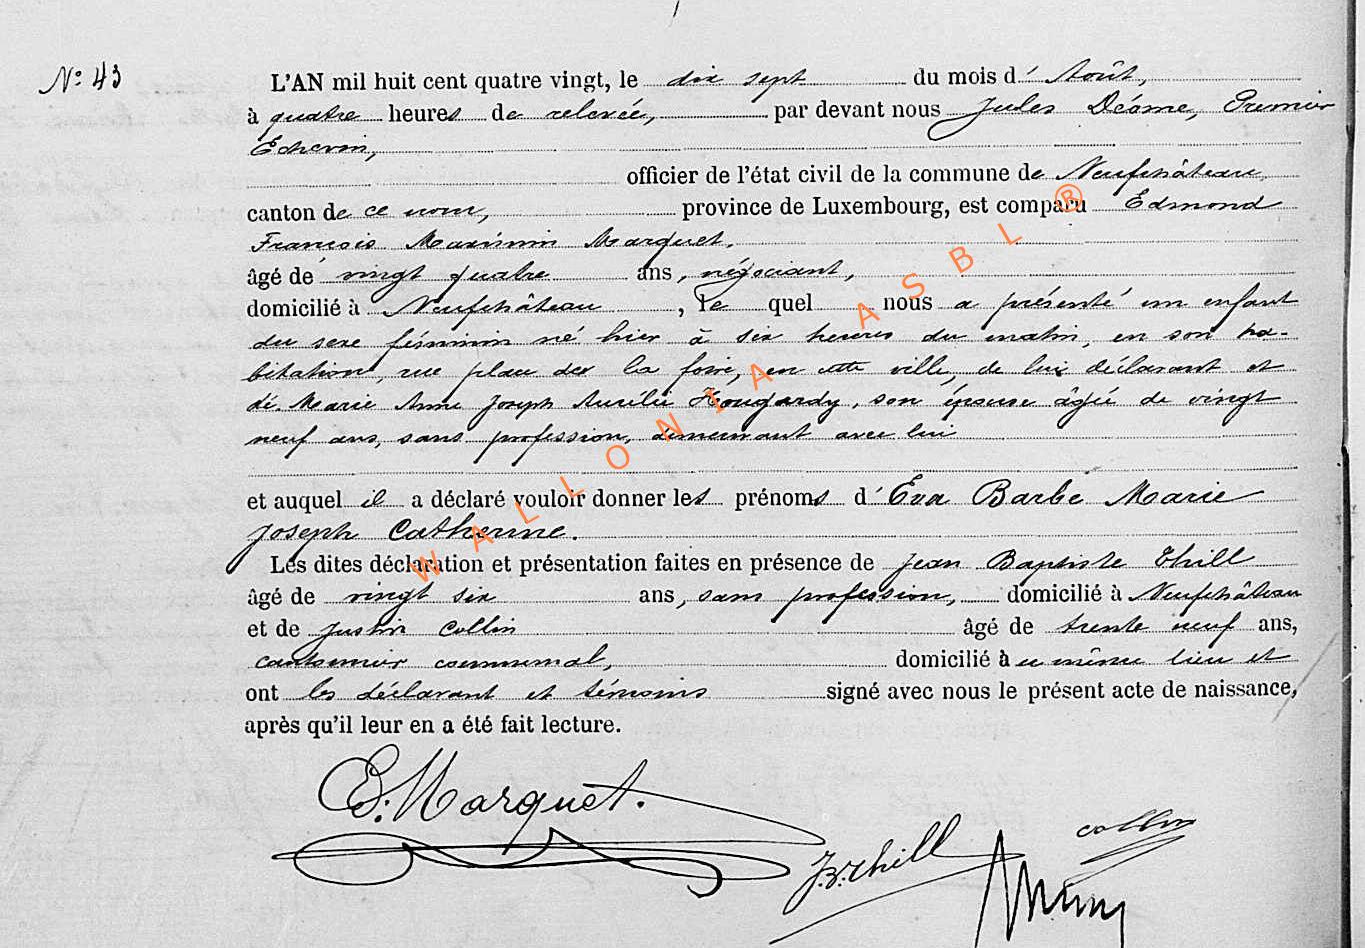 N° 43
L'AN mil huit cent quatre vingt, le dix sept du mois d'Août,
à quatre heures de relevée, par devant nous Jules Déome, Premier
Echevin,
officier de l'état civil de la commune de Neufchâteau,
canton de ce nom, province de Luxembourg, est comparu Edmond
François Maximin Marquet,
âgé de vingt quatre ans, négociant,
domicilié à Neufchâteau, le quel nous a présenté un enfant
du sexe féminin né hier à six heures du matin, en son ha-
bitation, rue place de la foire, en cette ville, de lui déclarant et
de Marie Anne Joseph Aurélie Hougardy, son épouse âgée de vingt
neuf ans, sans profession, demeurant avec lui
et auquel il a déclaré vouloir donner les prénoms d'Eva Barbe Marie
Joseph Catherine.
Les dites déclaration et présentation faites en présence de Jean Baptiste Thill
âgé de vingt six ans, sans profession, domicilié à Neufchâteau
et de Justin Collin âgé de trente neuf ans,
cantonnier communal, domicilié à u même lieu et
ont les déclarant et témoins signé avec nous le présent acte de naissance,
après qu'il leur en a été fait lecture.
E. Marquet.
J.B. Thill
Collin
WALLONIA ASBL ®